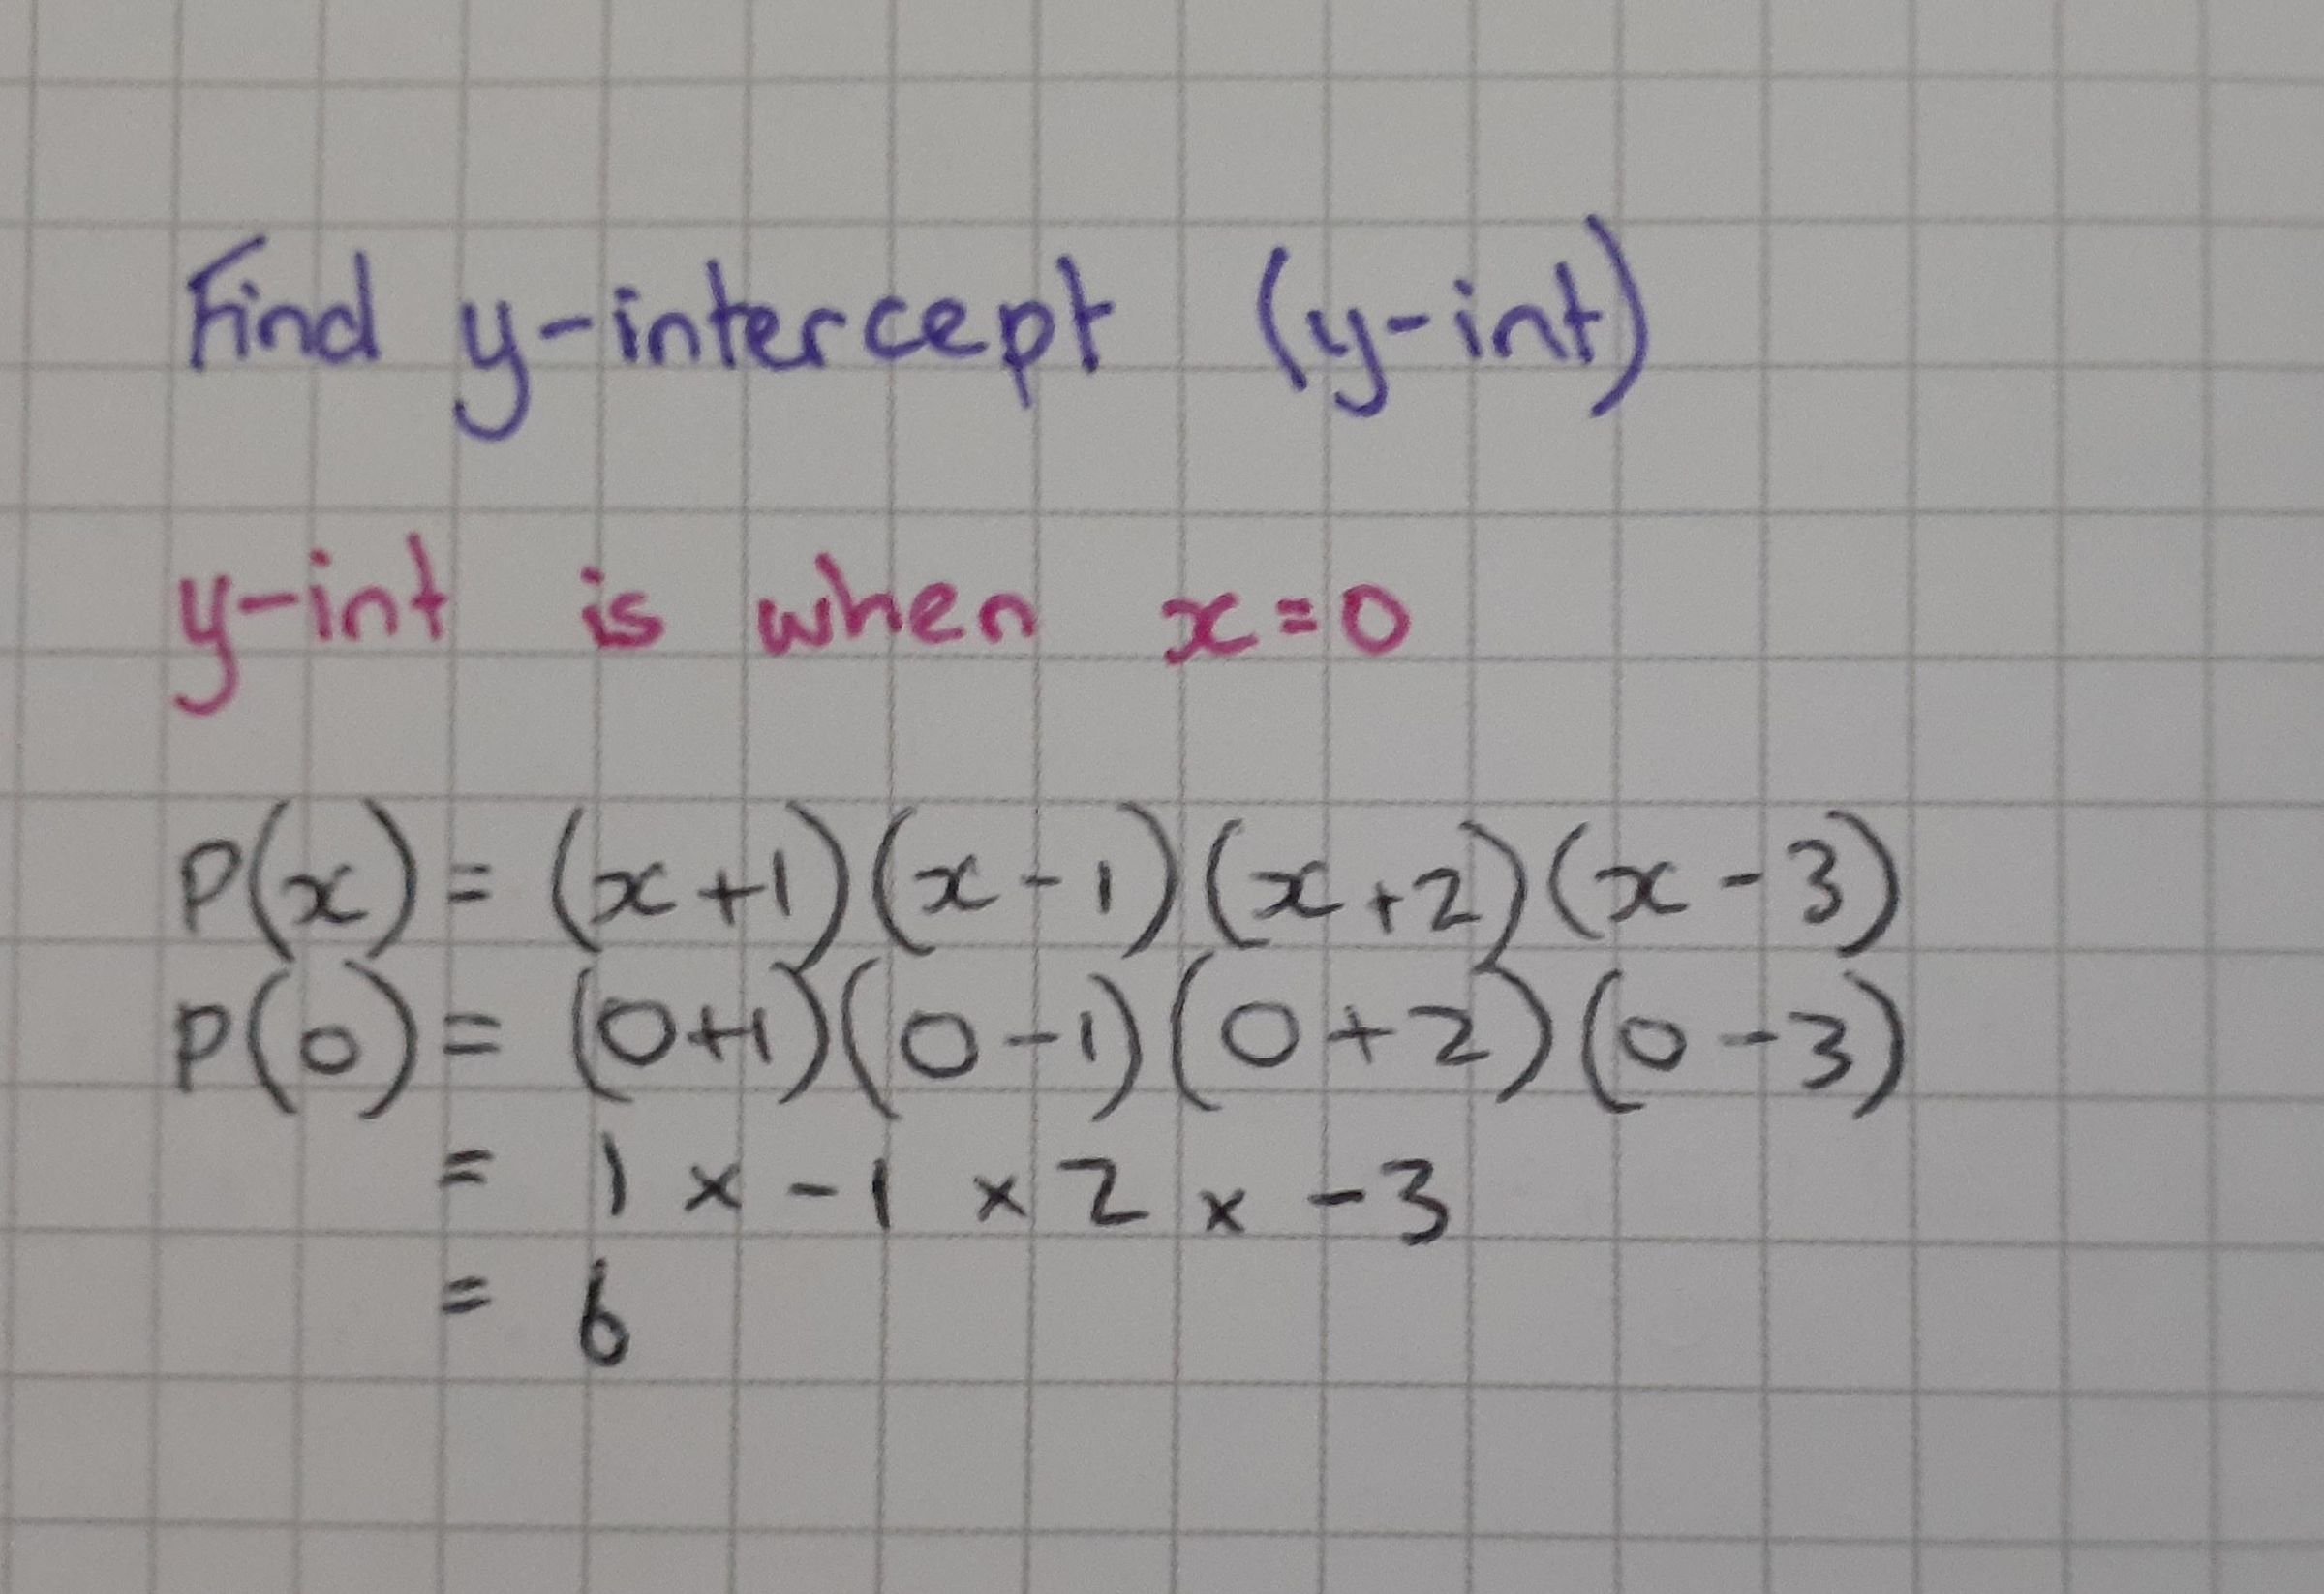 Find y-intercept (y-int)
y-int is when x=0
P(x) = (x+1)(x-1)(x+2)(x-3)
P(0) = (0+1)(0-1)(0+2)(0-3)
= 1 x -1 x 2 x -3
= 6